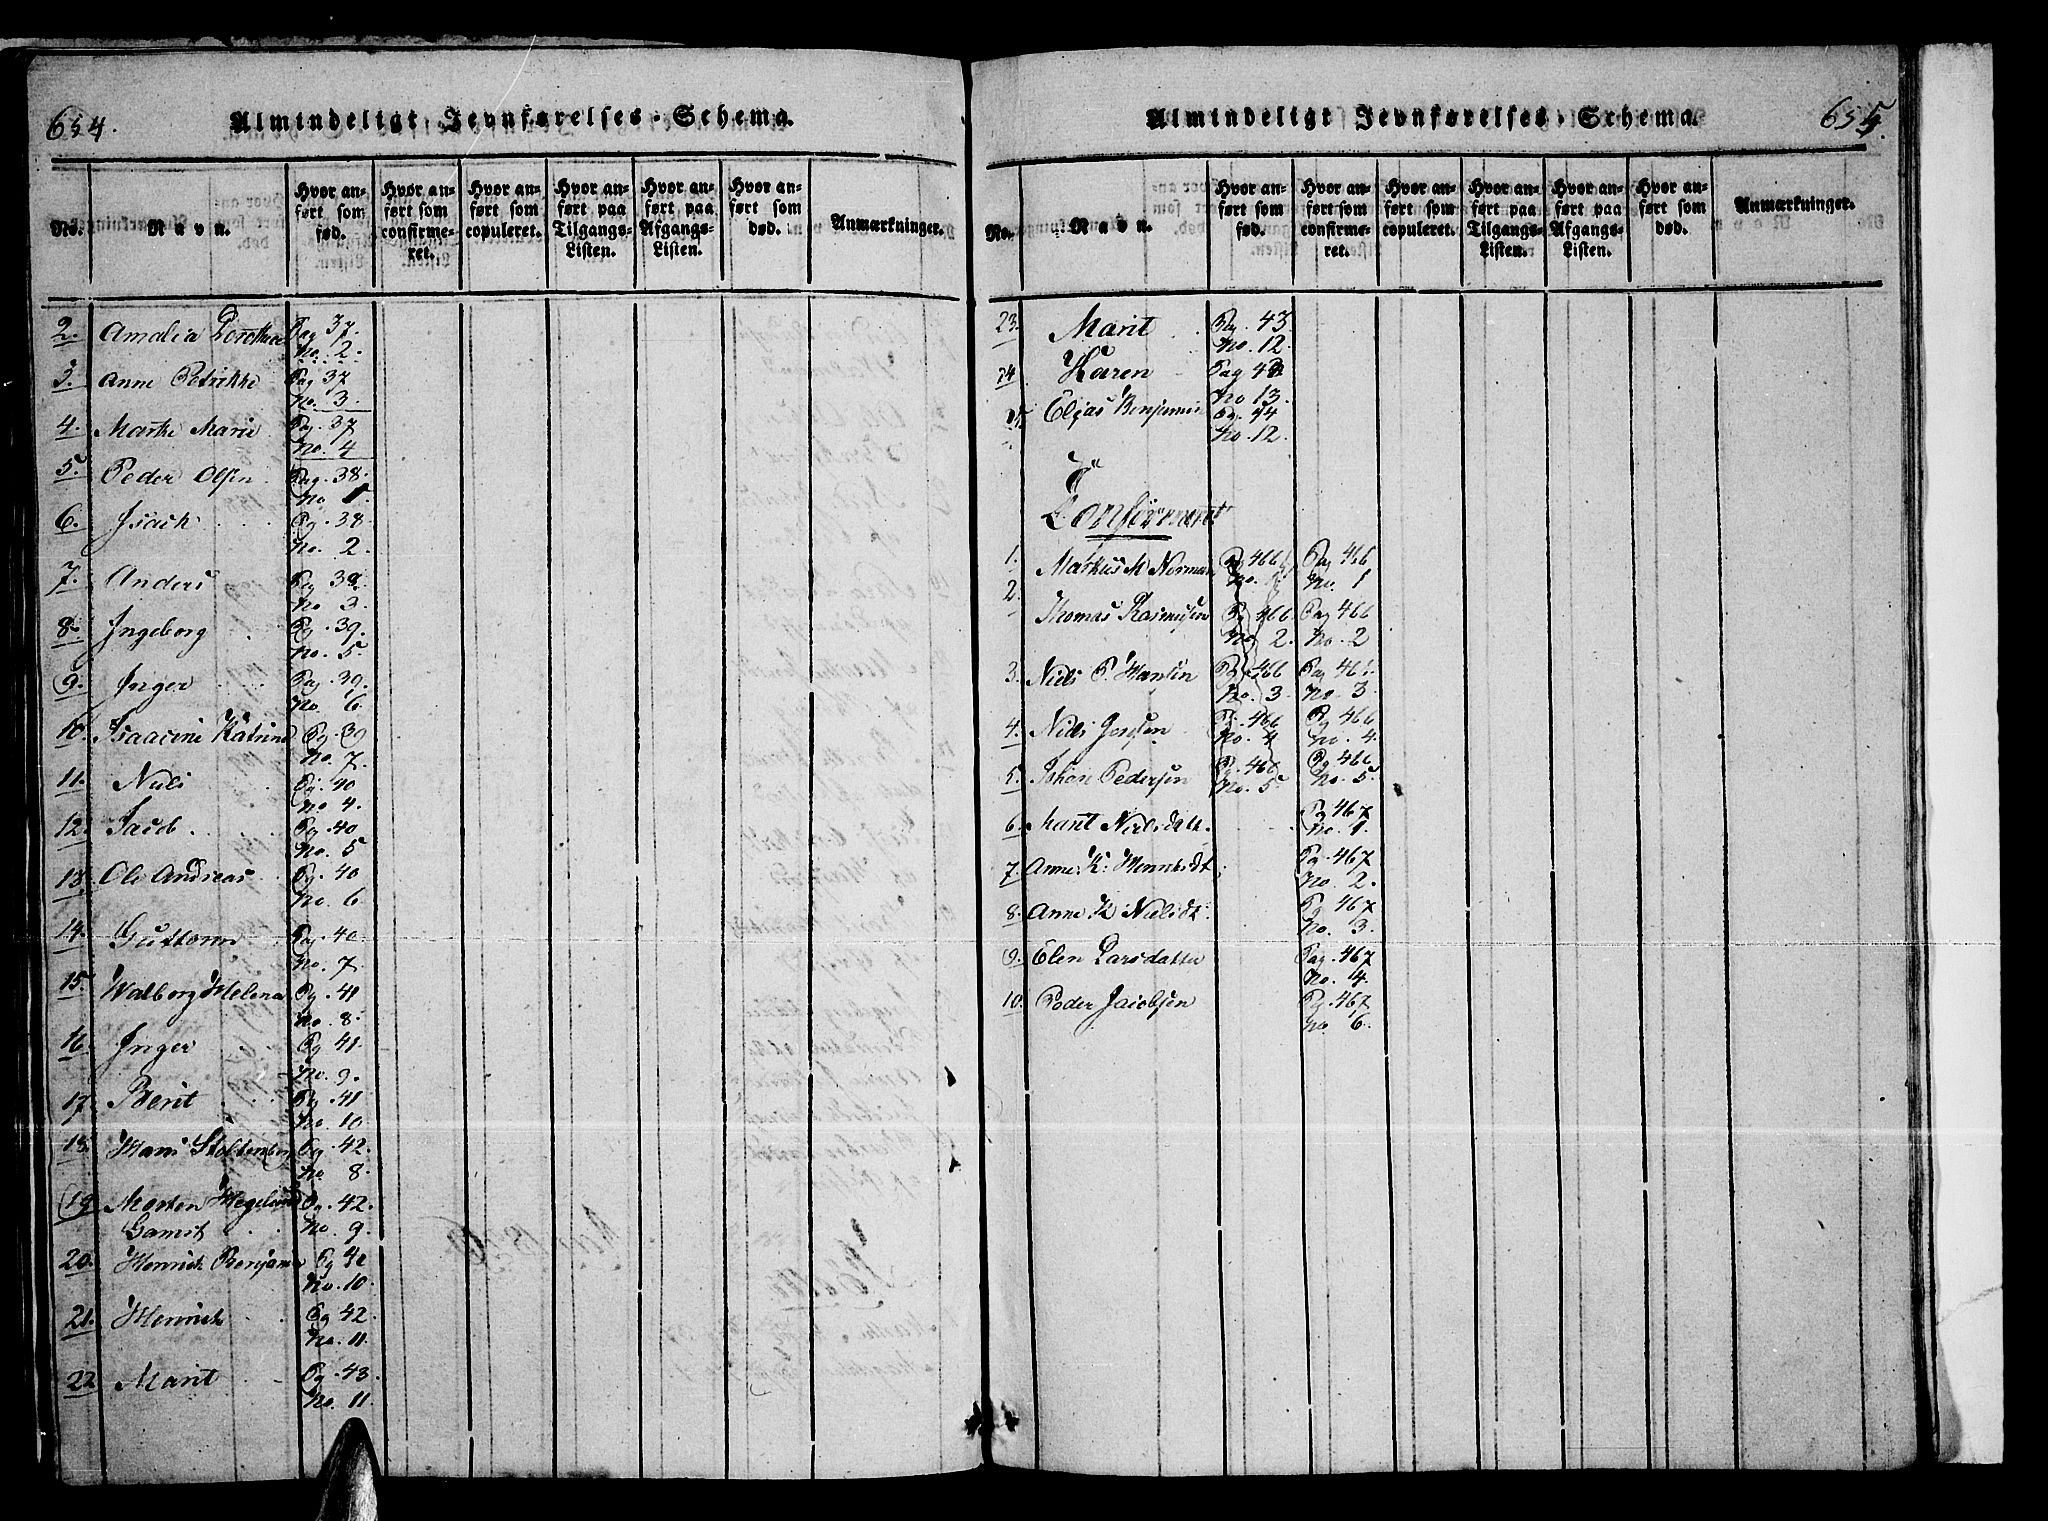 654.
Almindeligt Jevnførelses-Schema.
No.
Navn.
Hvor anført som fød.
Hvor anført som confirmeret.
Hvor anført som copuleret.
Hvor anført paa Tilgangs-Listen.
Hvor anført paa Afgangs-Listen.
Hvor anført som død.
Anmærkninger.
2. Amalia Dorothea Pag 37
No. 2.
3. Anne Petrikke Pag 37
No. 3.
4. Marthe Marie Pag. 37
No. 4
5. Peder Olsen Pag. 38.
No 1.
6. Isach Pg. 38.
No. 2.
7. Anders Pg. 38.
No 3.
8. Ingeborg Pg. 39.
No. 5.
9. Inger Pag. 39.
No. 6
10. Isaacine Katrine Pg. 39
No. 7.
11. Niels Pg. 40
No 4.
12. Jacob Pg. 40
No. 5
13. Ole Andreas Pg. 40
No. 6
14. Guttorm Pag. 40.
No. 7
15. Walborg Helena Pg. 41
No. 8.
16. Inger Pg. 41.
No. 9.
17. Berit Pg. 41
No. 10
18. Hans Stoltenberg Pg. 42.
No 8.
19. Morten Hegelund Pg. 42.
Gamst No. 9.
20. Henrich Benjamin Pg 42
No. 10.
21. Henrich Pg. 42
No. 11.
22 Marit Pg. 43
No. 11
655.
Almindeligt Jevnførelses-Schema.
No.
Navn.
Hvor anført som fød.
Hvor anført som confirmeret.
Hvor anført som copuleret.
Hvor anført paa Tilgangs-Listen.
Hvor anført paa Afgangs-Listen.
Hvor anført som død.
Anmærkninger.
23. Marit Pg. 43
No. 12.
24 Karen Pag 43
No 13.
25. Elias Benjamin Pg. 44
No. 12.
Confirmeret
1. Markus M Norman Pg 466 Pag 466
No. 1 No. 1
2. Thomas Rasmussen Pg 466 Pag 466
No 2. No. 2
3. Niels P. Hansen Pg 466 Pag 466
No. 3 No. 3
4. Niels Pg. 466 Pg 466
No. 4 No. 4.
5. Johan Pedersen Pg. 466 Pg 466
No. 5 No. 5.
6. Marit Nielsdatt. Pg 467
No. 1.
7. Anne K. Pg. 467
No. 2.
8. Anne K Nielsdt. Pg 467
No. 3.
9. Elen Larsdatter Pag. 467
No. 4.
10. Peder Jacobsen Pg. 467
No. 6.